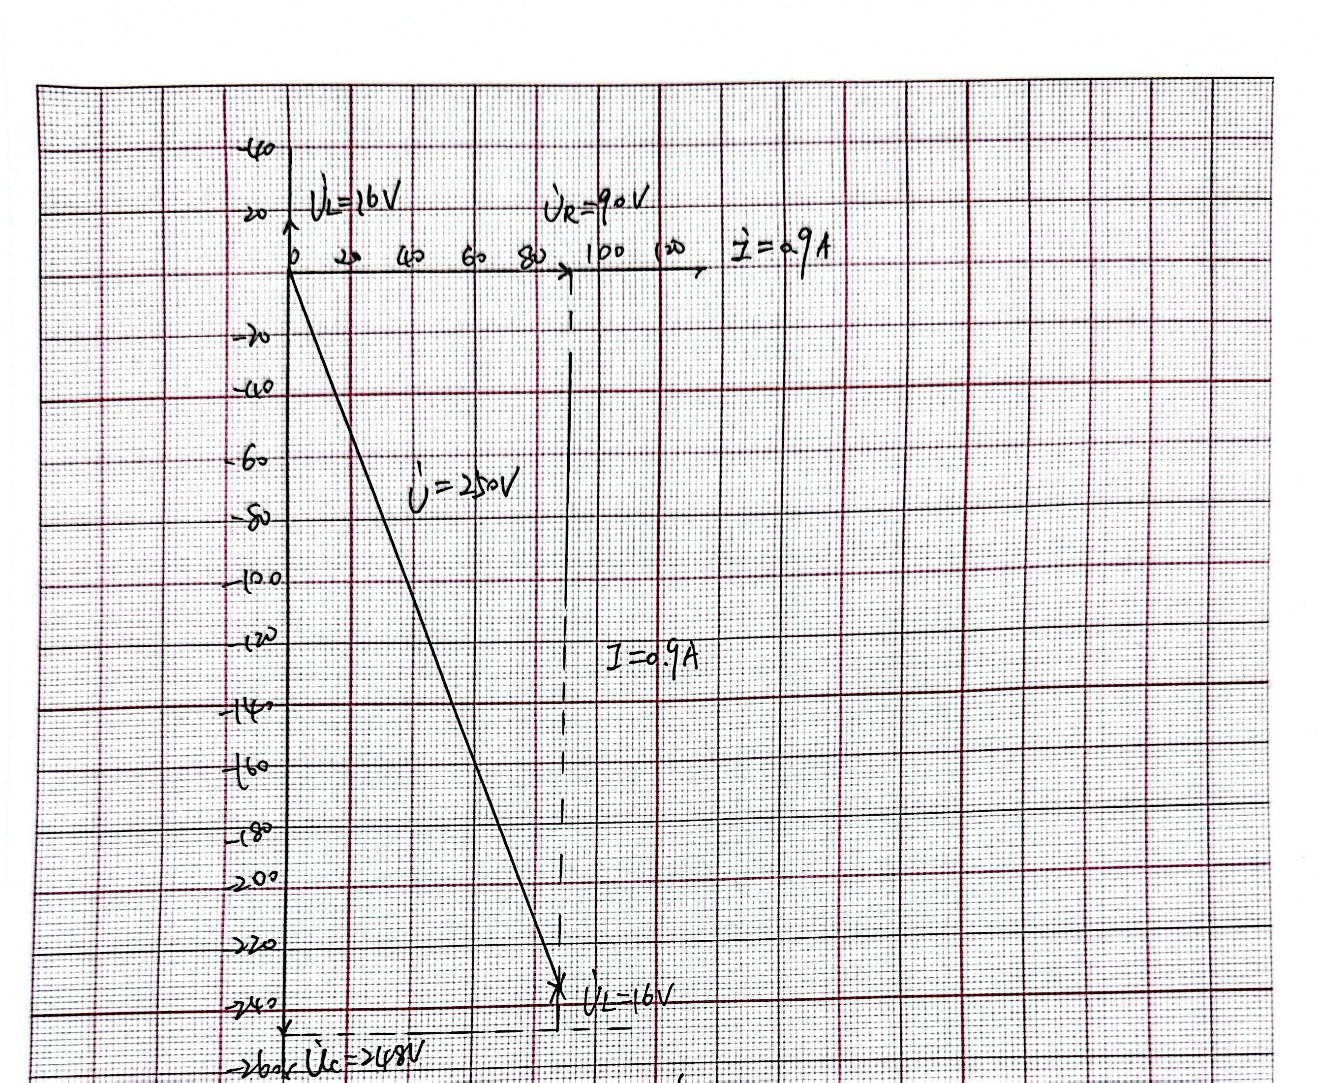 -40
U̇L=16V
U̇R=90V
20
0 20 40 60 80 100 120
İ=0.9A
-20
-40
-60
U̇=250V
-80
-100
-120
I=0.9A
-140
-160
-180
-200
-220
-240
U̇L=16V
-260
U̇c=248V